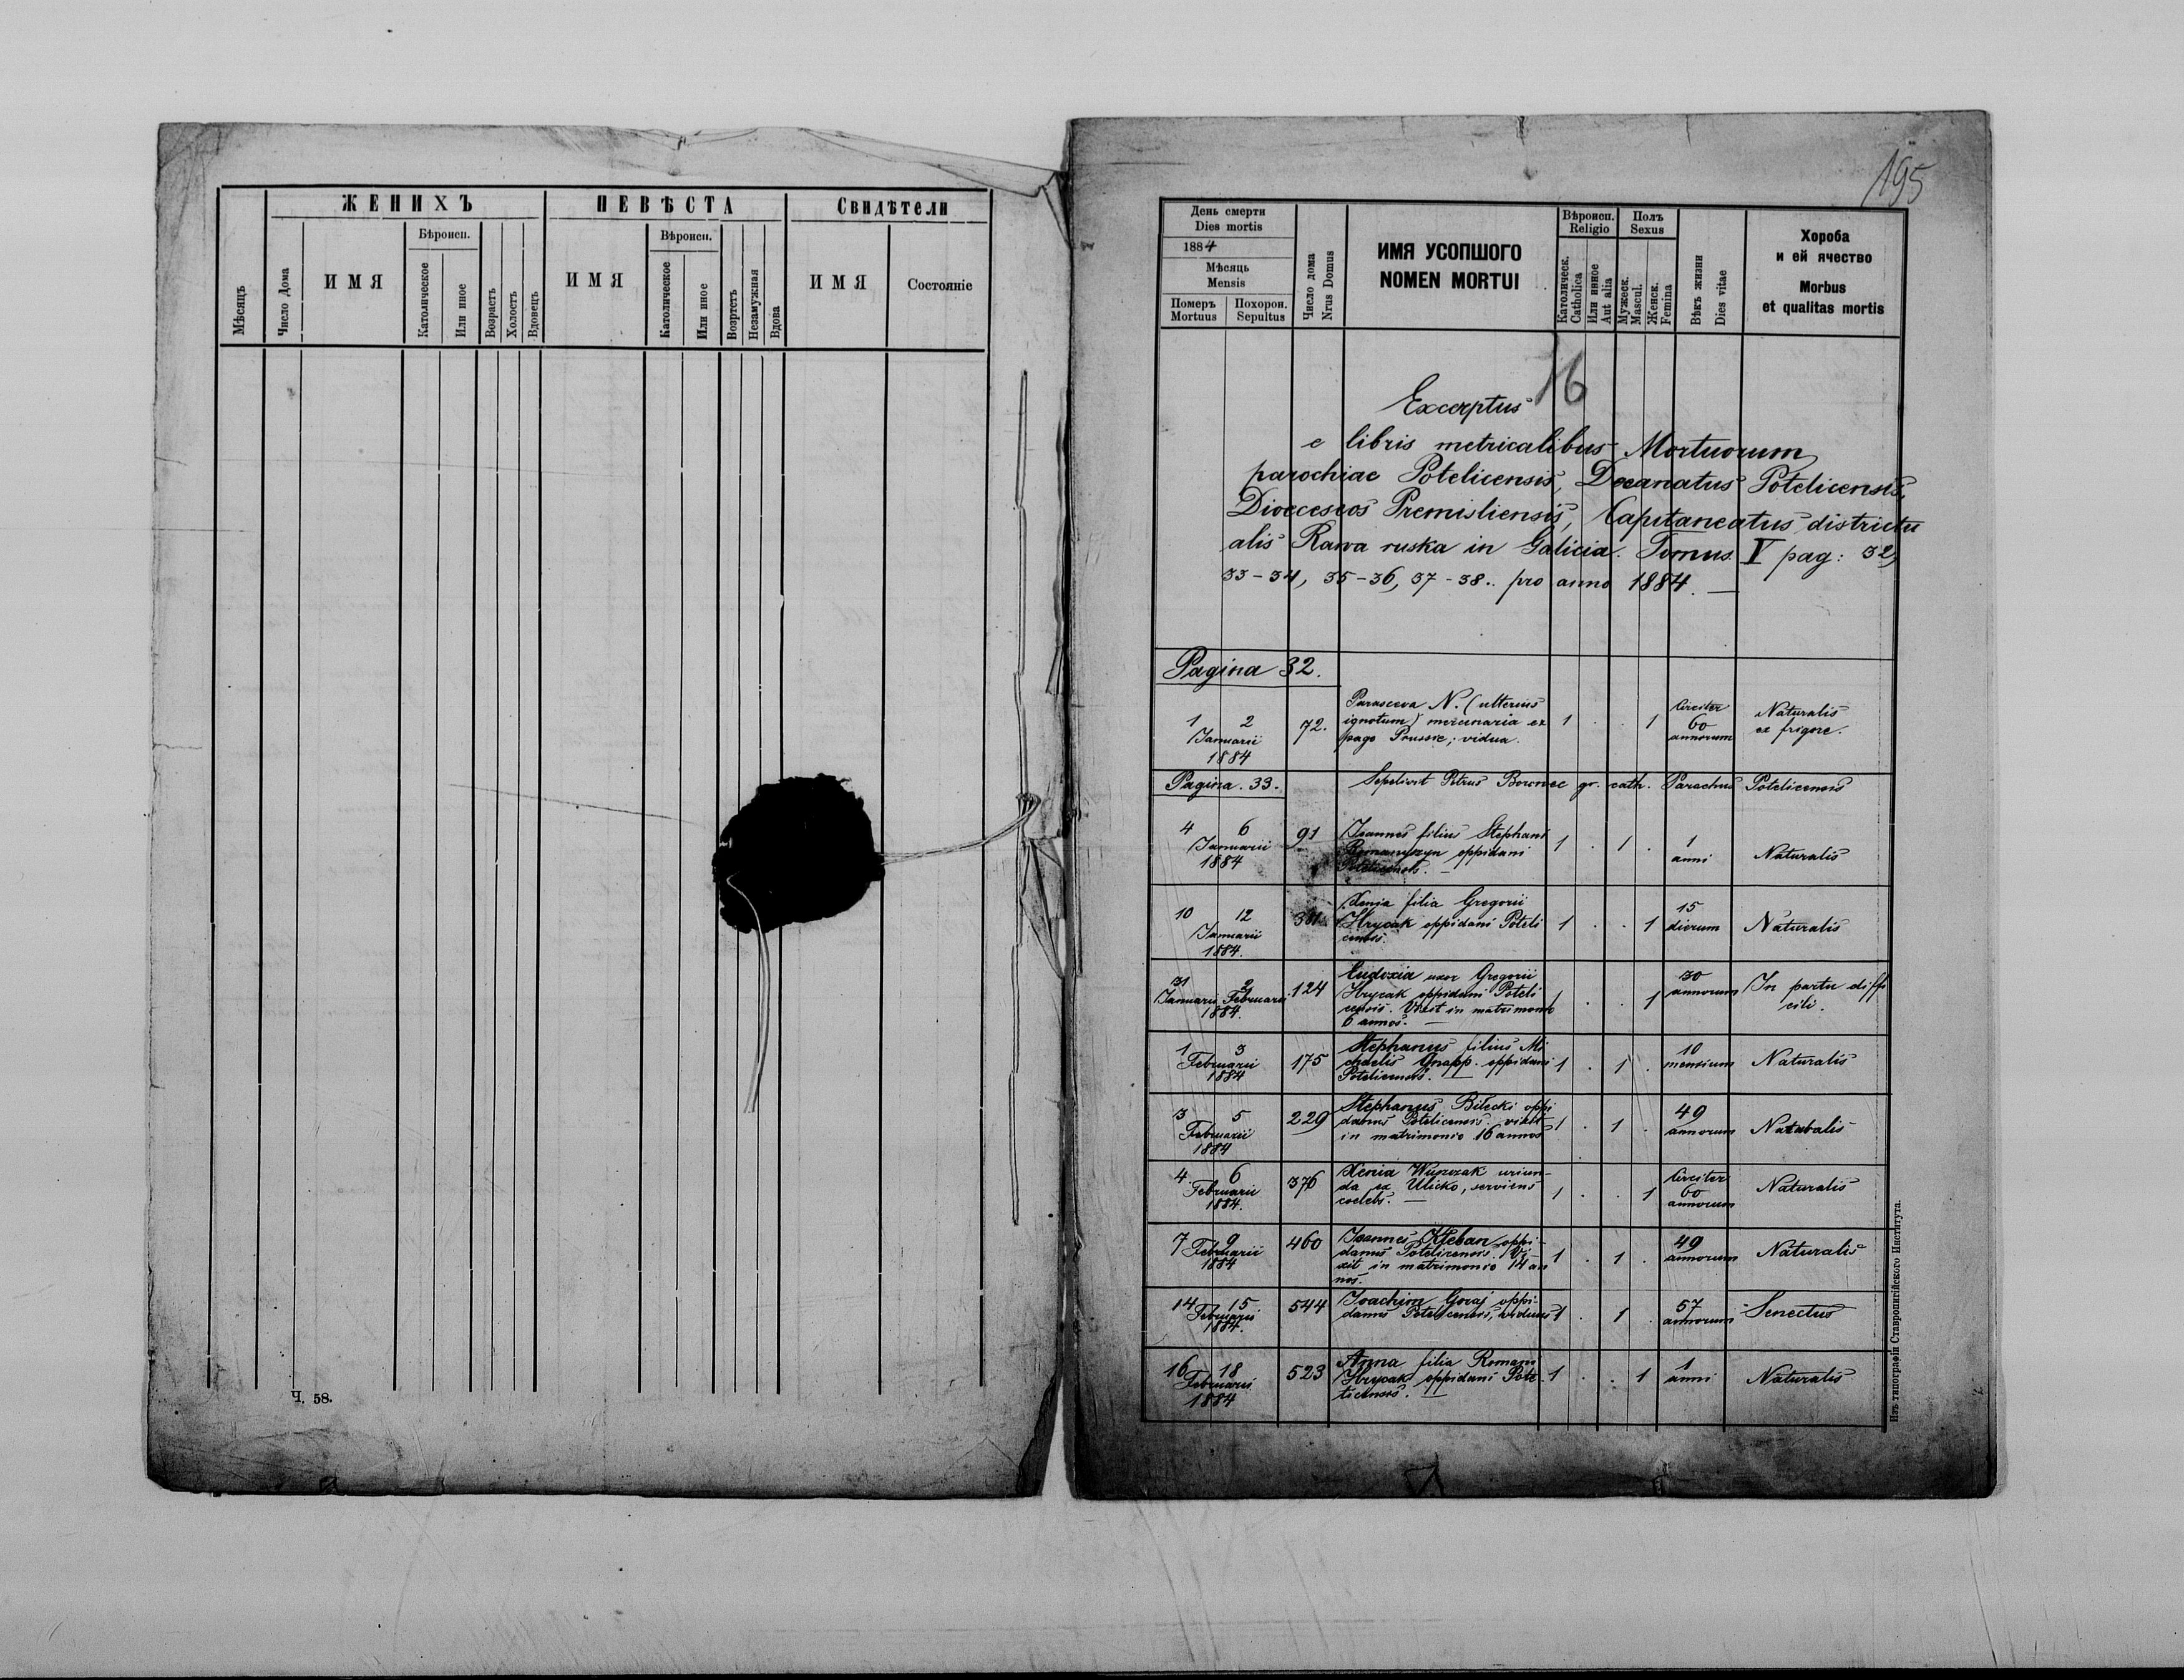 ЖЕНИХЪ
ПЕВѢСТА
Свидѣтели
Мѣсяцъ
Число Дома
ИМЯ
Бѣроисп.
Католическое
Или иное
Возрастъ
Холостъ
Вдовецъ
ИМЯ
Вѣроисп.
Католическое
Или иное
Возртстъ
Незамужная
Вдова
ИМЯ
Состояніе
Ч. 58.
195
День смерти
Dies mortis
1884
Мѣсяць
Mensis
Померъ
Mortuus
Похорон.
Sepultus
Число дома
Nrus Domus
ИМЯ УСОПШОГО
NOMEN MORTUI
Вѣроисп.
Religio
Католическ.
Catholica
Или инное
Aut alia
Полъ
Sexus
Мужеск.
Mascul.
Женск.
Femina
Вѣкъ жизни
Dies vitae
Хороба
и ей ячество
Morbus
et qualitas mortis
16
Excerptus
e libris metricalibus Mortuorum
parochiae Potelicensis, Decanatus Potelicensis,
Dioeceseos Premisliensis, Capitaneatus districtu
alis Rawa ruska in Galicia. Tomus V pag: 32,
33-34, 35-36, 37-38. pro anno 1884. —
Pagina 32.
1 2 Januarii 1884 72. Parasceva N. (ulterius
ignotum) mercenaria ex
pago Prussie; vidua. 1 . . 1 Circiter 60 annorum Naturalis
ex frigore.
Pagina. 33. Sepelivit Petrus gr. cath. Parochus Potelicensis
4 6 Januarii 1884 91 Joannes filius Stephani
Romanyszyn oppidani
Potelicensis. — 1 . 1 . 1 anni Naturalis
10 12 Januarii 1884. 381. Xenia filia Gregorii
Hrycak oppidani Poteli
censis. 1 . . 1 15 dierum Naturalis
31 Januarii 2 Februarii 1884. 124 Eudoxia uxor Gregorii
Hrycak oppidani Poteli
censis. Vixit in matrimonio
6 annos. — 1 . . 1 30 annorum In partu diffi
cili.
1 3 Februarii 1884 175 Stephanus filius Mi
chaelis Gnapp. oppidani
Potelicensis. — 1 . 1 . 10 mensium Naturalis
3 5 Februarii 1884 229 Stephanus Bilecki oppi
danus Potelicensis. vixit
in matrimonio 16 annos 1 . 1 . 49 annorum Naturalis
4 6 Februarii 1884. 376 Xenia uriun-
da ex Ulicko, serviens
coelebs. — 1 . . 1 Circiter 60 annorum Naturalis
7 9 Februarii 1884 460 Joannes Kleban oppi-
danus Potelicensis. Vi-
xit in matrimonio 14 an
nos. 1 . 1 . 49 annorum Naturalis
14 15 Februarii 1884. 544 Joachim Goraj oppi-
danus Potelicensis, viduus 1 . 1 . 57 annorum Senectus
16 18 Februarii 1884 523 Anna filia Romani
Hrycak oppidani Pote-
licensis. — 1 . . 1 1 anni Naturalis
Изъ типографіи Ставропигійского Института.